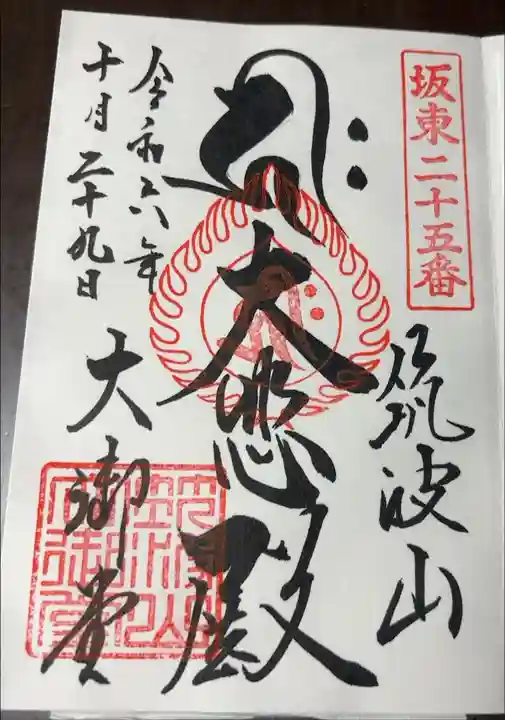 坂東二十五番
筑波山
大悲殿
大御堂
令和六年
十月二十九日